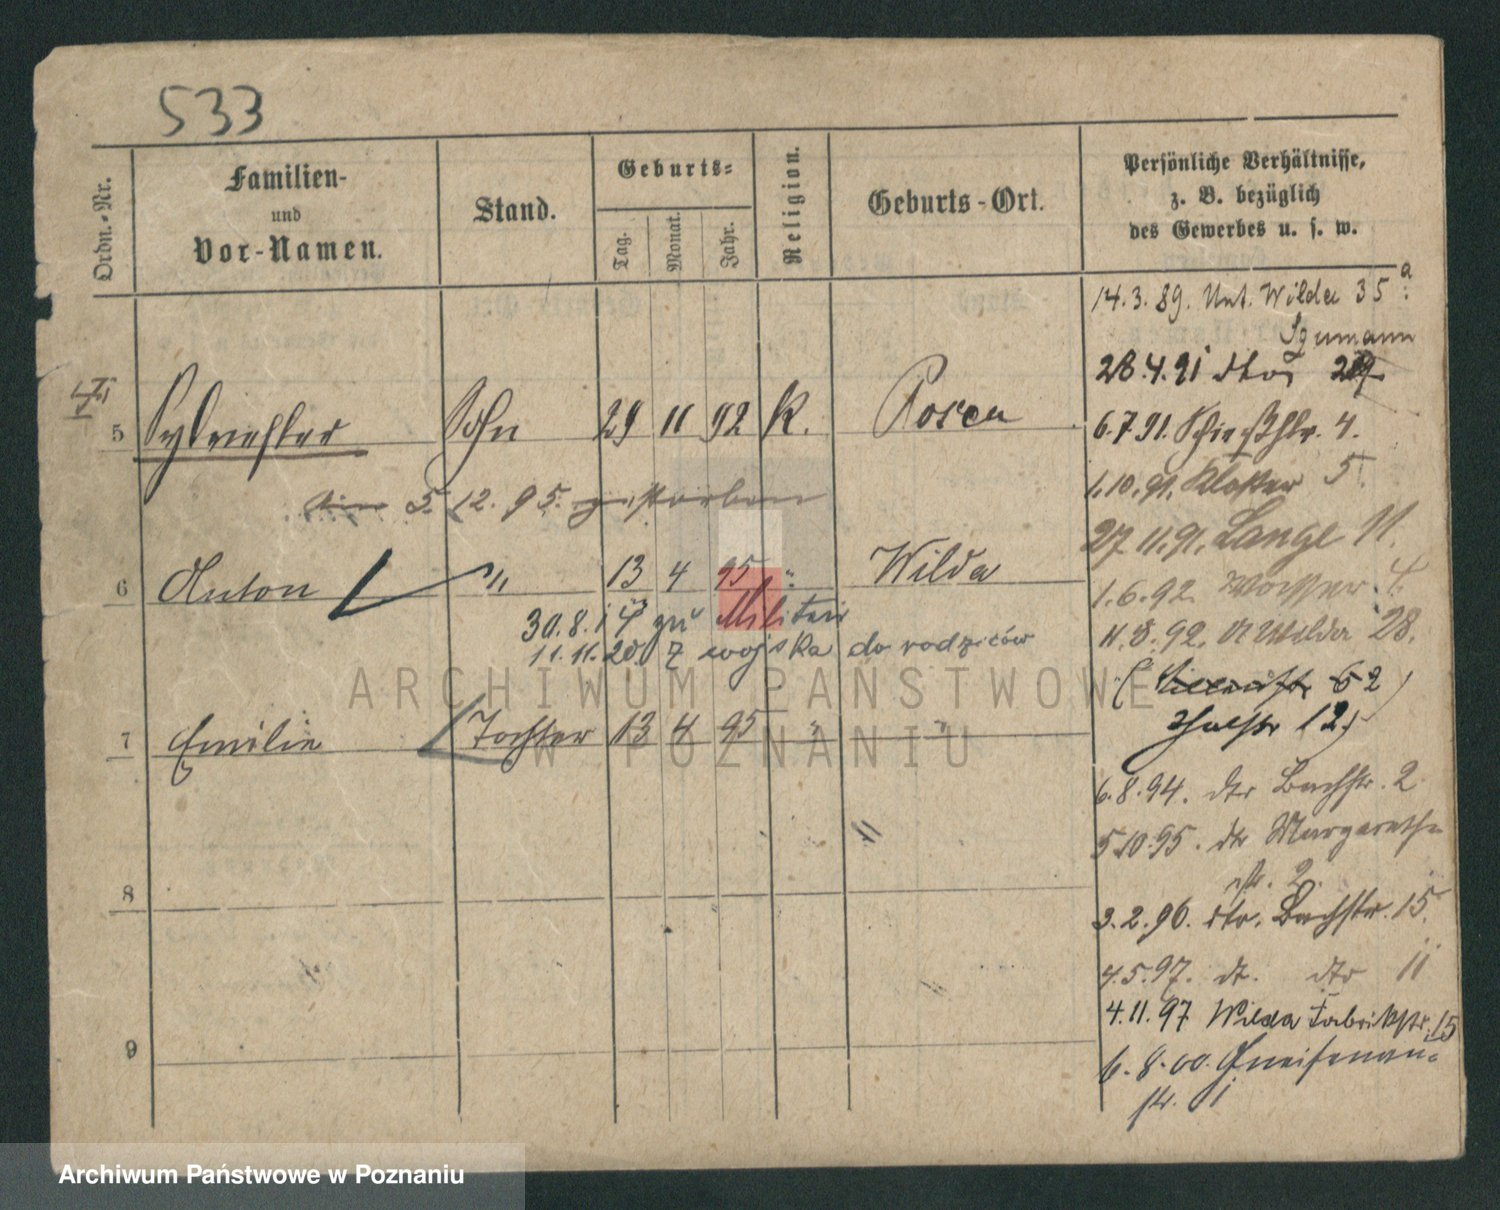 533
Ordn.-Nr.
Familien-
und
Vor-Namen.
Stand.
Geburts-
Tag.
Monat.
Jahr.
Religion.
Geburts-Ort.
Persönliche Verhältnisse,
z. B. bezüglich
des Gewerbes u. s. w.
14.3.89. Unt. Wilda 35 a
28.4.91 dto
5 Sylvester Sohn 29 11 92 K. Posen
6.7.91. Schießstr. 4.
1.10.91. Kloster 5.
5. 12. 95. gestorben
27 11.91. Lange 11.
6 Anton " 13 4 95 " Wilda
1.6.92. Wasser 4.
30.8.14 zu Militair
11.8.92. Wilda 28.
11.11.20. z wojska do rodziców
62
ARCHIWUM PAŃSTWOWE
W POZNANIU
12
7 Emilie Tochter 13 4 95 " "
6.8.94. dto Bachstr. 2
5.10.95. dto Margarethen
str. 2.
8
3.2.96. dto. Bachstr. 15.
4.5.97. dt. dto 11
4.11.97 Wilda Fabrikstr. 15
9
6.8.00. Gneisenau-
str. 1
Archiwum Państwowe w Poznaniu